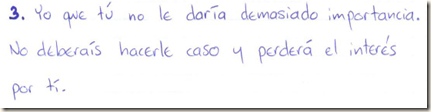 3. Yo que tú no le daría demasiado importancia.
No deberaís hacerle caso y perderá el interés
por tí.